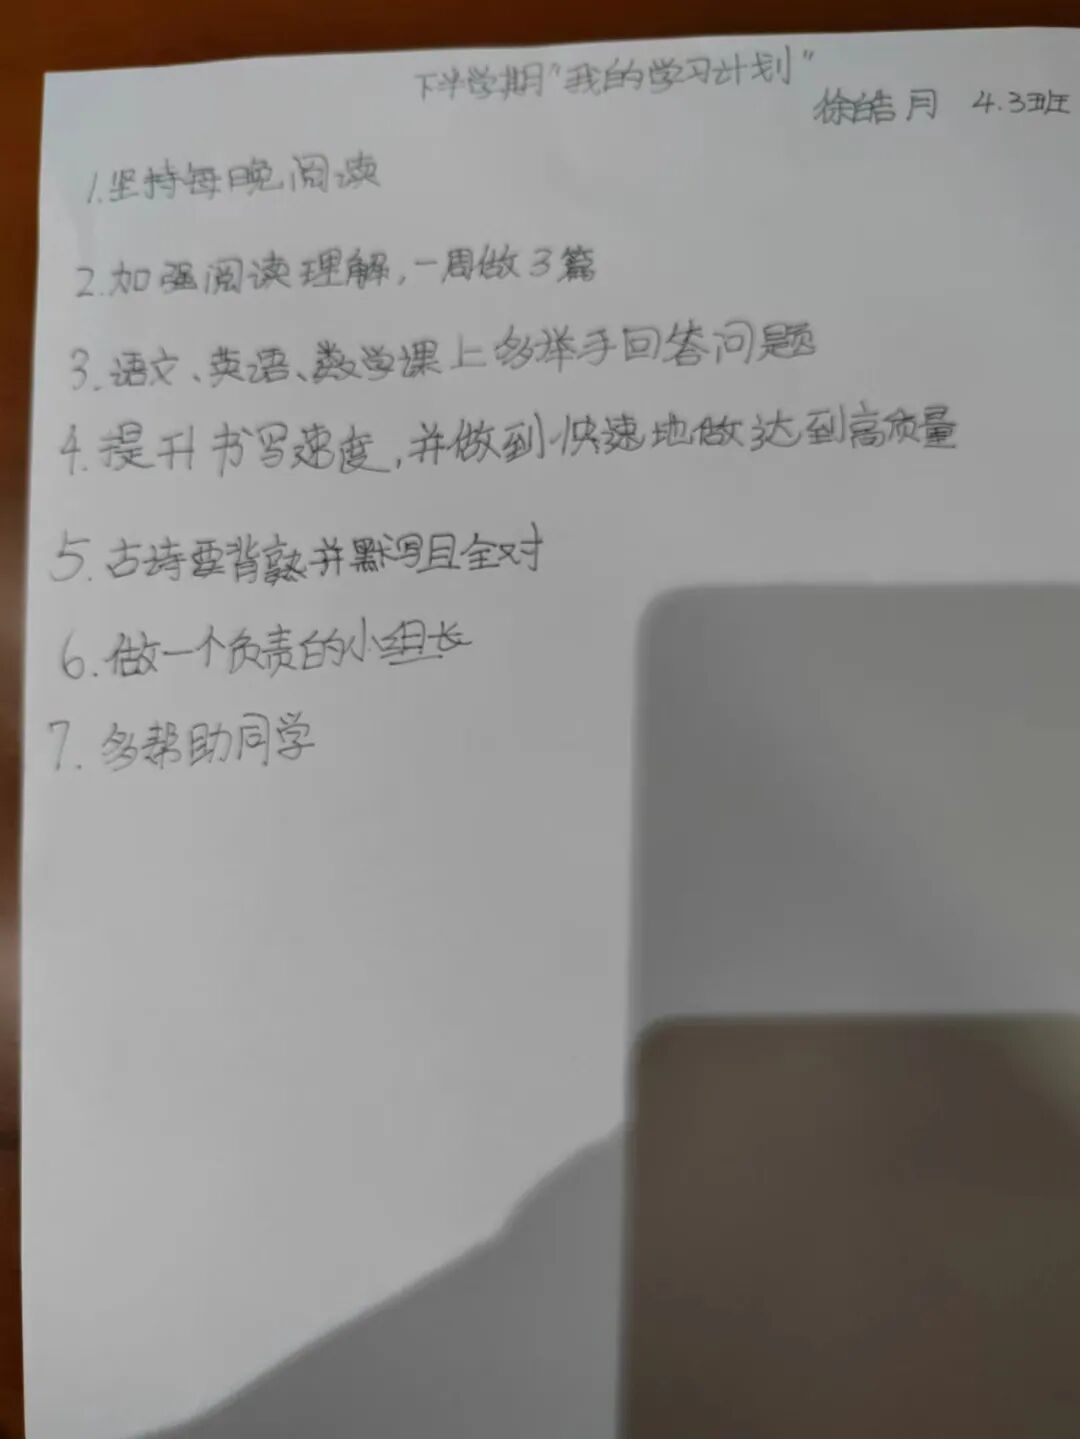 下半学期“我的学习计划”
徐皓月 4.3班
1.坚持每晚阅读
2.加强阅读理解,一周做3篇
3.语文、英语、数学课上多举手回答问题
4.提升书写速度,并做到快速地做达到高质量
5.古诗要背熟并默写且全对
6.做一个负责的小组长
7.多帮助同学